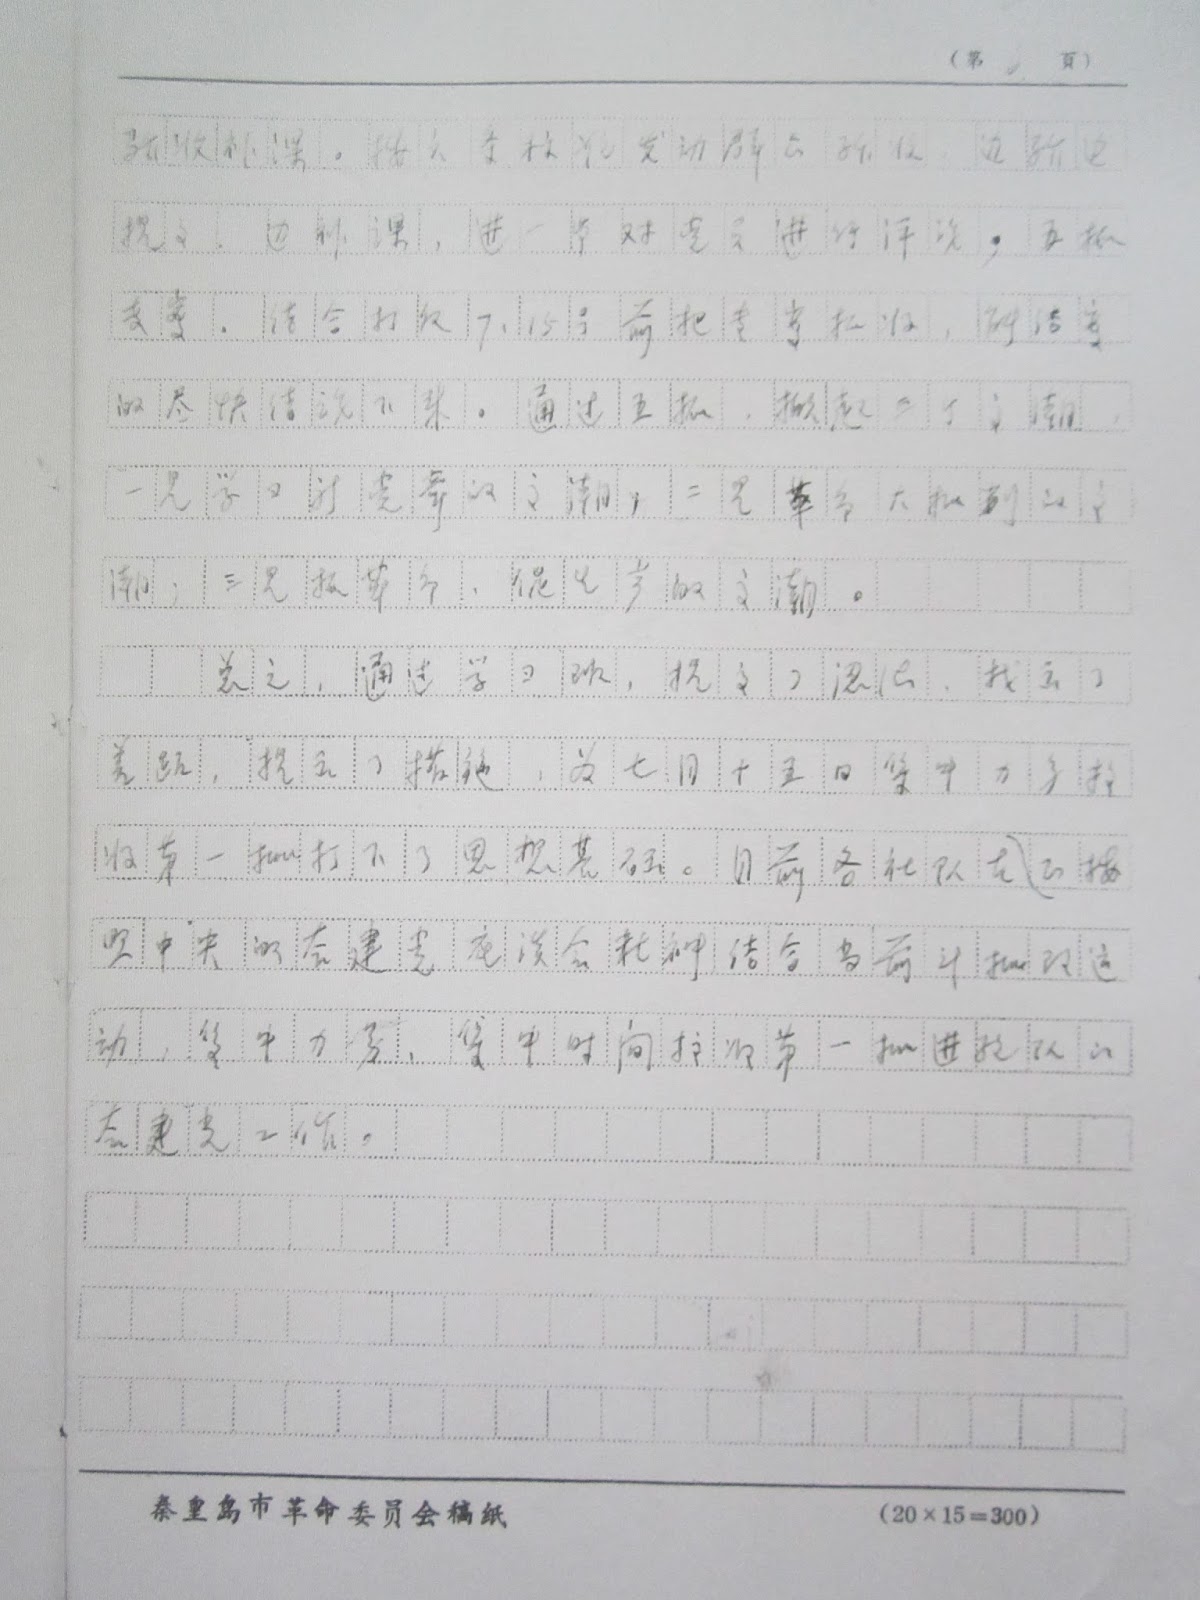 （第 頁）
验收补课。按六条标准发动群众验收，边验边
提高，边补课，进一步对党员进行评议，五抓
专案。结合打 7、15号前把专案 收，
的尽快结论下来。通过五抓，掀起三个高潮，
一是学习新党章的高潮，二是革命大批判的高
潮；三是抓革命、促生产的高潮。
总之，通过学习班，提高了认识，找出了
差距，提出了措施，为七月十五日集中力量整
收第一批打下了思想基础。目前各社队在 按
照中央的 建党座谈会精神结合当前斗批改运
动，集中力量、集中时间 第一批进 队的
建党工作。
秦皇岛市革命委员会稿纸 （20×15=300）